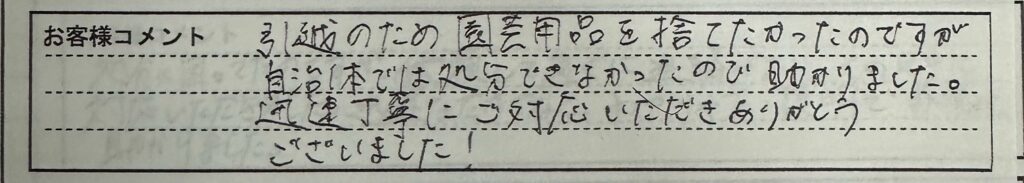 お客様コメント 引越のため園芸用品を捨てたかったのですが
自治体では処分できなかったので助かりました。
迅速丁寧にご対応いただきありがとう
ございました!